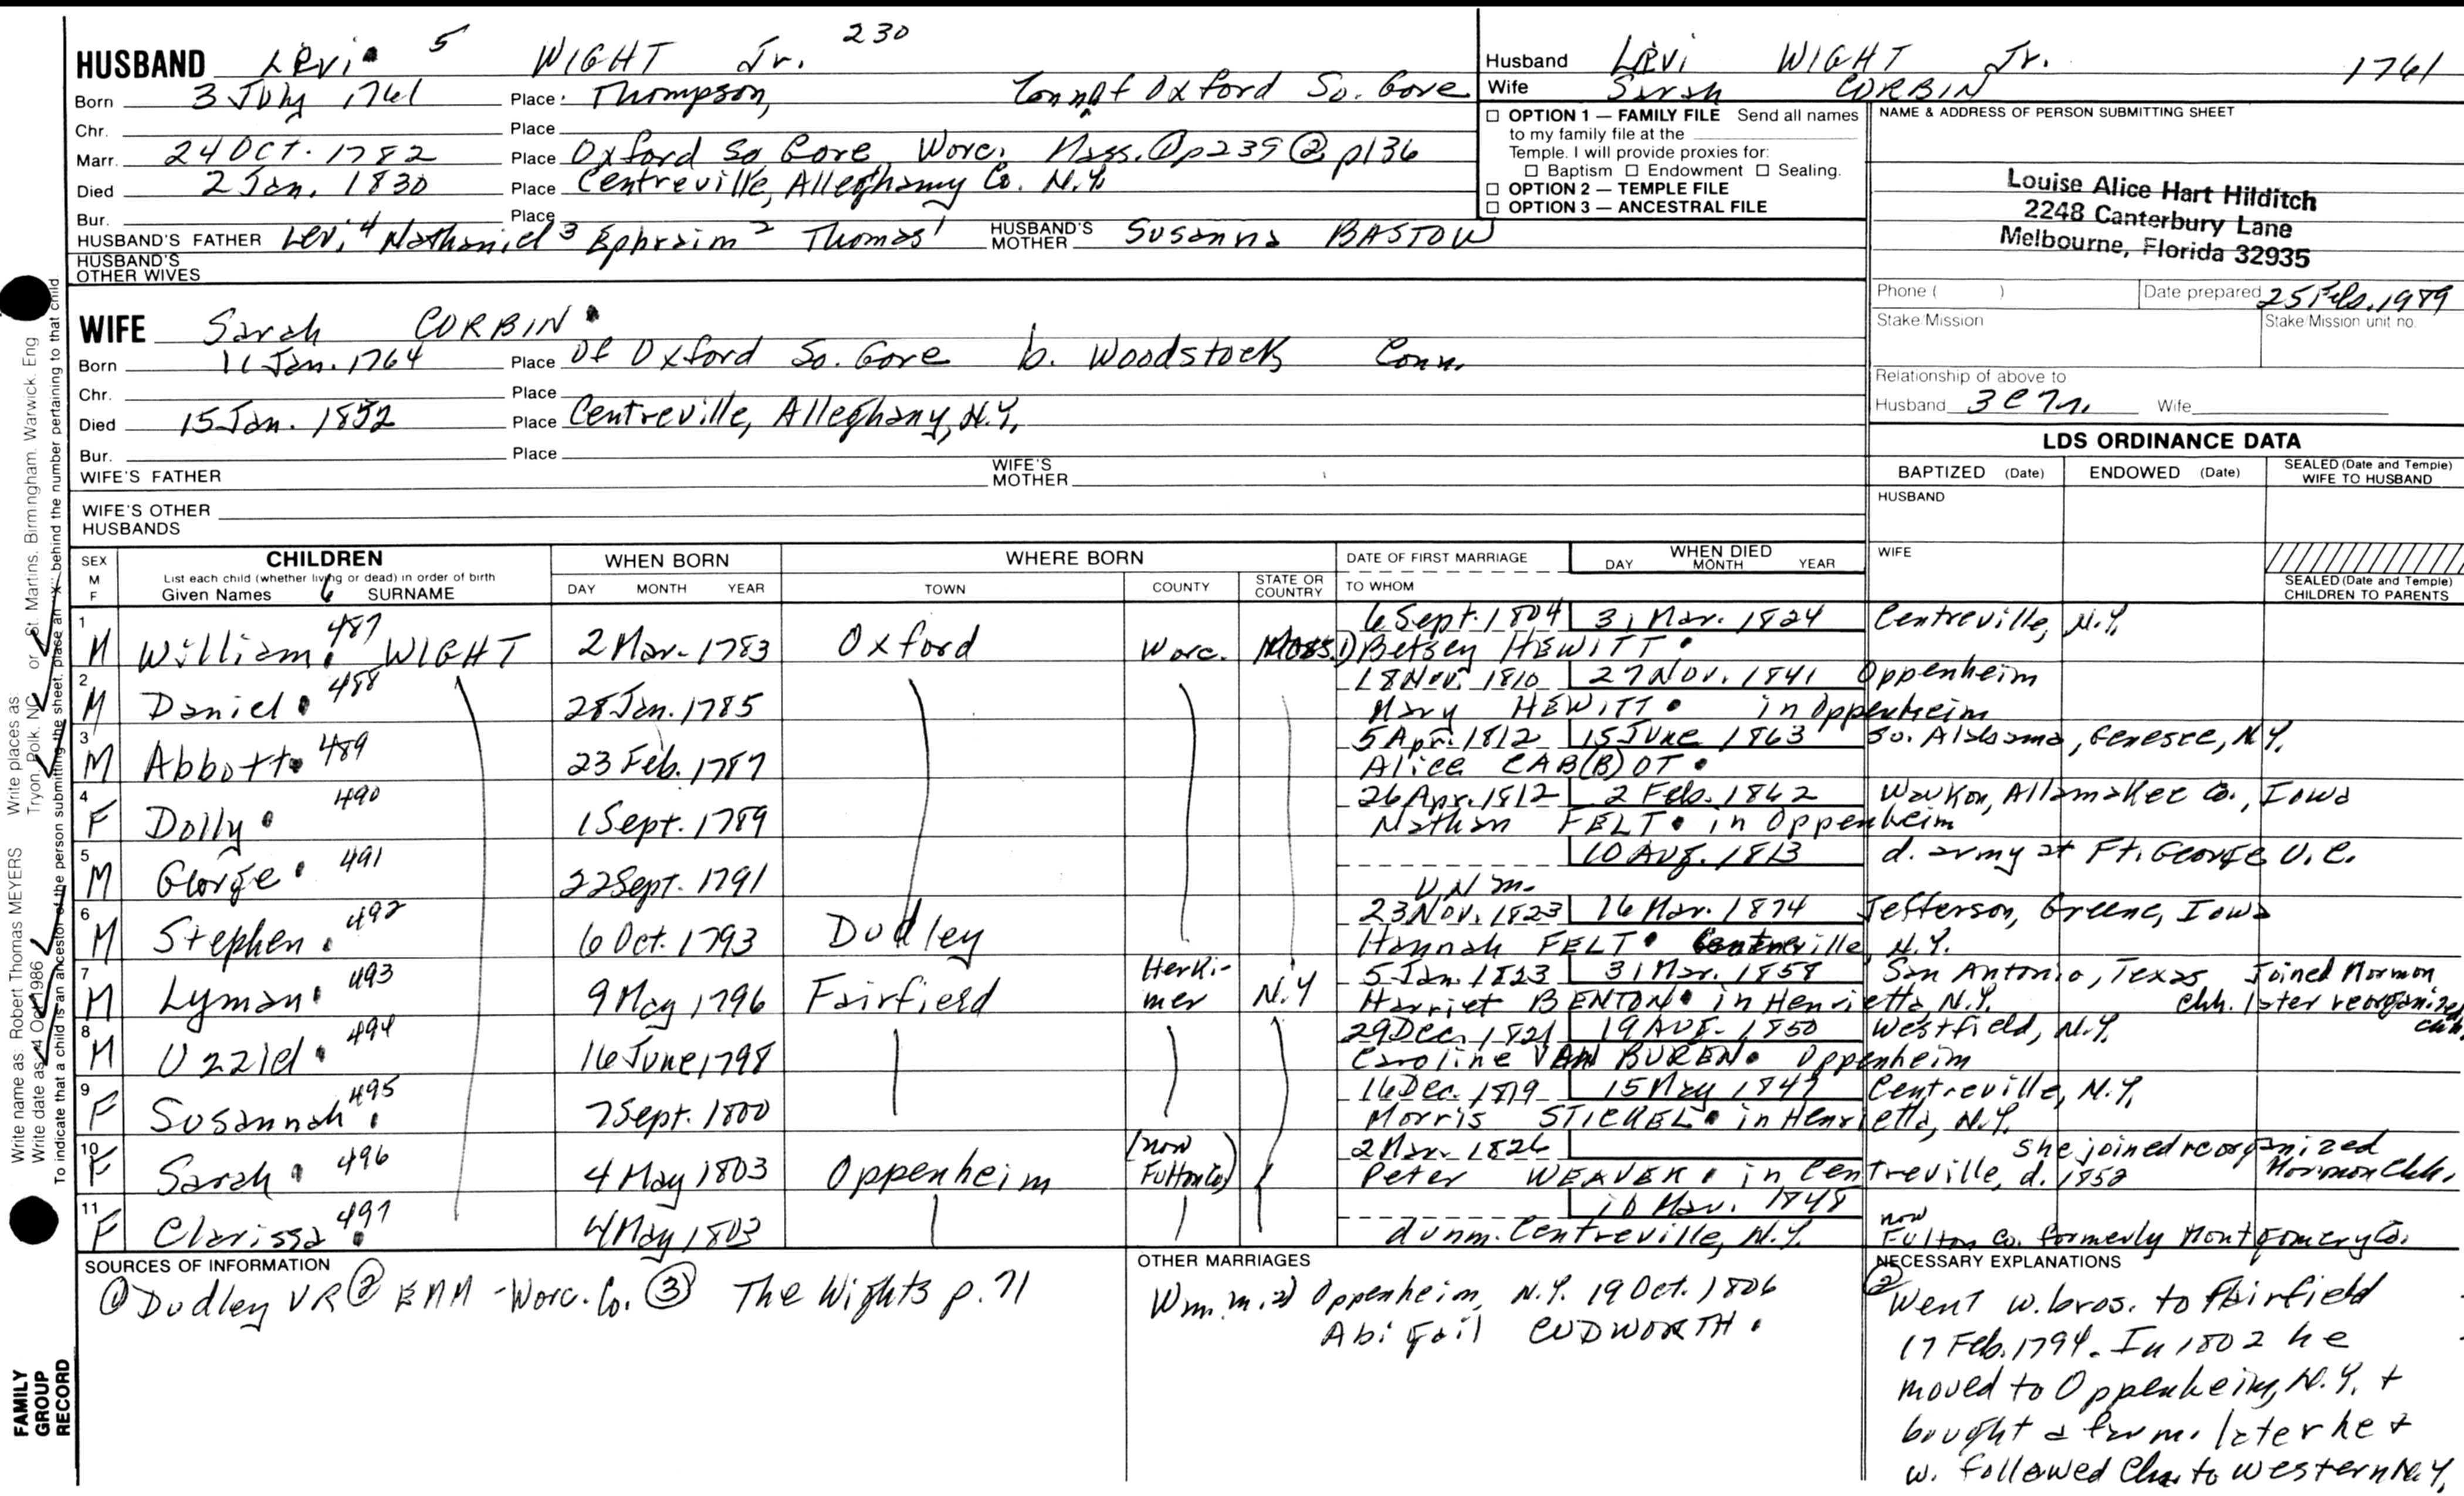 HUSBAND Levi 5 WIGHT Jr. 230
Born 3 July 1761 Place Thompson, Conn of Oxford So. Gore
Chr. Place
Marr. 24 Oct. 1782 Place Oxford So Gore, Worc. Mass. ① p239 ② p136
Died 2 Jan. 1830 Place Centreville, Alleghany Co. N.Y.
Bur. Place
HUSBAND'S FATHER Levi 4 Nathaniel 3 Ephraim 2 Thomas 1 HUSBAND'S MOTHER Susanna BASTOW
HUSBAND'S OTHER WIVES
WIFE Sarah CORBIN
Born 11 Jan. 1764 Place of Oxford So. Gore b. Woodstock Conn.
Chr. Place
Died 15 Jan. 1852 Place Centreville, Alleghany, N.Y.
Bur. Place
WIFE'S FATHER WIFE'S MOTHER
WIFE'S OTHER HUSBANDS
Husband Levi WIGHT Jr. 1761
Wife Sarah CORBIN
☐ OPTION 1 — FAMILY FILE Send all names
to my family file at the
Temple. I will provide proxies for:
☐ Baptism ☐ Endowment ☐ Sealing.
☐ OPTION 2 — TEMPLE FILE
☐ OPTION 3 — ANCESTRAL FILE
NAME & ADDRESS OF PERSON SUBMITTING SHEET
Louise Alice Hart Hilditch
2248 Canterbury Lane
Melbourne, Florida 32935
Phone ( ) Date prepared 25 Feb. 1989
Stake/Mission Stake/Mission unit no.
Relationship of above to
Husband 3C7r. Wife
LDS ORDINANCE DATA
BAPTIZED (Date) ENDOWED (Date) SEALED (Date and Temple) WIFE TO HUSBAND
HUSBAND
WIFE
SEALED (Date and Temple) CHILDREN TO PARENTS
SEX M F CHILDREN WHEN BORN WHERE BORN DATE OF FIRST MARRIAGE WHEN DIED
List each child (whether living or dead) in order of birth DAY MONTH YEAR
Given Names 6 SURNAME DAY MONTH YEAR TOWN COUNTY STATE OR COUNTRY TO WHOM
6 Sept. 1804 31 Mar. 1824 Centreville, N.Y.
1 M William 487 WIGHT 2 Mar. 1783 Oxford Worc. Mass. 1) Betsey HEWITT
18 Nov. 1810 27 Nov. 1841 Oppenheim
2 M Daniel 488 28 Jan. 1785 Mary HEWITT in Oppenheim
5 Apr. 1812 15 June 1863 So. Alabama, Genesee, N.Y.
3 M Abbott 489 23 Feb. 1787 Alice CAB(B)OT
26 Apr. 1812 2 Feb. 1862 Waukon, Allamakee Co., Iowa
4 F Dolly 490 1 Sept. 1789 Nathan FELT in Oppenheim
10 Aug. 1813 d. army at Ft. George U.C.
5 M George 491 22 Sept. 1791 UNm.
23 Nov. 1823 16 Mar. 1874 Jefferson, Greene, Iowa
6 M Stephen 492 6 Oct. 1793 Dudley Hannah FELT Centreville, N.Y.
5 Jan. 1823 31 Mar. 1858 San Antonio, Texas Joined Mormon
7 M Lyman 493 9 May 1796 Fairfield Herkimer N.Y Harriet BENTON in Henrietta N.Y. Chh. later reorganized chh.
29 Dec. 1821 19 Aug. 1850 Westfield, N.Y.
8 M Uzziel 494 16 June 1798 Caroline VAN BUREN Oppenheim
16 Dec. 1819 15 May 1847 Centreville, N.Y.
9 F Susannah 495 7 Sept. 1800 Morris STICKEL in Henrietta, N.Y.
2 Mar. 1826 She joined reorganized
10 F Sarah 496 4 May 1803 Oppenheim (now Fulton Co) Peter WEAVER in Centreville, d. 1852 Mormon Chh.
16 Mar. 1848
11 F Clarissa 497 4 May 1803 d unm. Centreville, N.Y. now Fulton Co. formerly Montgomery Co.
SOURCES OF INFORMATION
① Dudley VR ② EMM - Worc. Co. ③ The Wights p. 71
OTHER MARRIAGES
Wm. m. 2) Oppenheim, N.Y. 19 Oct. 1806
Abigail CUDWORTH
NECESSARY EXPLANATIONS
② Went w. bros. to Fairfield
17 Feb. 1794. In 1802 he
moved to Oppenheim, N.Y. +
bought a farm. later he +
w. followed Chn to western N.Y.
Write name as: Robert Thomas MEYERS Write places as: Tryon, Polk, NC or St. Martins, Birmingham, Warwick, Eng
Write date as: 4 Oct 1986
To indicate that a child is an ancestor of the person submitting the sheet, place an "X" behind the number pertaining to that child
FAMILY
GROUP
RECORD